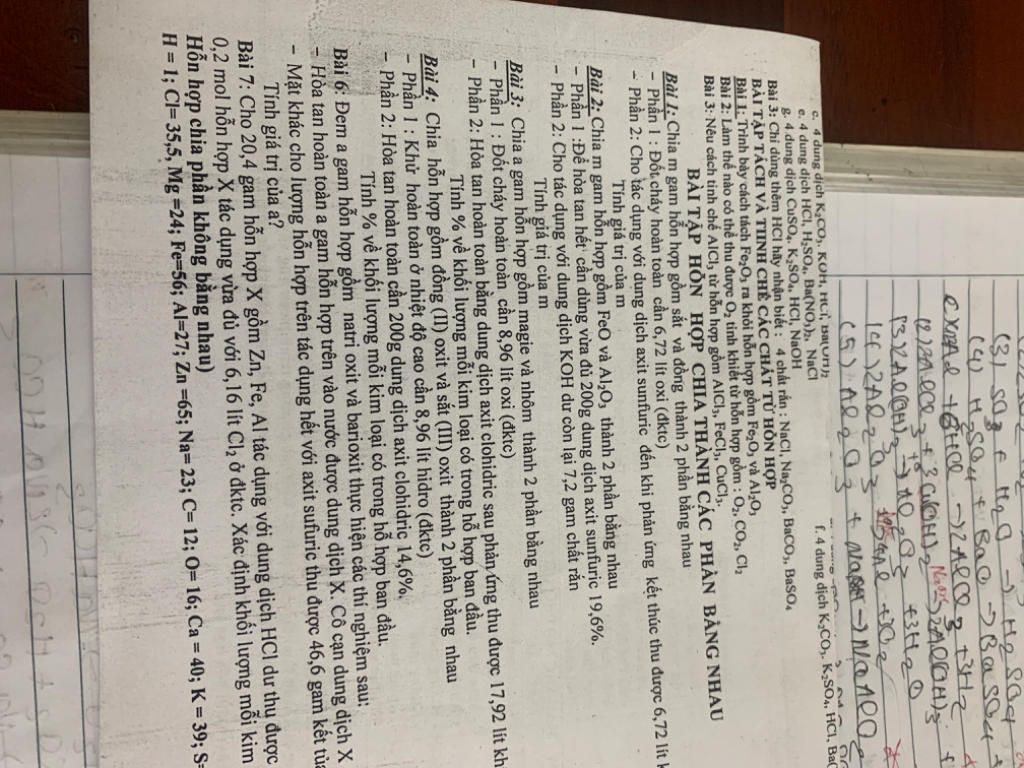 (3) SO3 + H2O → H2SO4
(4) H2SO4 + BaO → BaSO4 +
(3) 2Al(OH)3 → Al2O3 + 3H2O
(5) Al2O3 + NaOH → NaAlO2
c. 4 dung dịch K₂CO₃, KOH, HCl,
e. 4 dung dịch HCl, H₂SO₄, Ba(NO₃)₂, NaCl
f. 4 dung dịch K₂CO₃, K₂SO₄, HCl, Ba(
g. 4 dung dịch CuSO₄, K₂SO₄, HCl, NaOH
Bài 3: Chỉ dùng thêm HCl hãy nhận biết : 4 chất rắn : NaCl, Na₂CO₃, BaCO₃, BaSO₄
BÀI TẬP TÁCH VÀ TINH CHẾ CÁC CHẤT TỪ HỖN HỢP
Bài 1: Trình bày cách tách Fe₂O₃ ra khỏi hỗn hợp gồm Fe₂O₃ và Al₂O₃
Bài 2: Làm thế nào có thể thu được O₂ tinh khiết từ hỗn hợp gồm : O₂, CO₂, Cl₂
Bài 3: Nêu cách tinh chế AlCl₃ từ hỗn hợp gồm AlCl₃, FeCl₃, CuCl₂.
BÀI TẬP HỖN HỢP CHIA THÀNH CÁC PHẦN BẰNG NHAU
Bài 1: Chia m gam hỗn hợp gồm sắt và đồng thành 2 phần bằng nhau
– Phần 1 : Đốt cháy hoàn toàn cần 6,72 lít oxi (đktc)
– Phần 2: Cho tác dụng với dung dịch axit sunfuric đến khi phản ứng kết thúc thu được 6,72 lít
Tính giá trị của m
Bài 2: Chia m gam hỗn hợp gồm FeO và Al₂O₃ thành 2 phần bằng nhau
– Phần 1 :Để hòa tan hết cần dùng vừa đủ 200g dung dịch axit sunfuric 19,6%.
– Phần 2: Cho tác dụng với dung dịch KOH dư còn lại 7,2 gam chất rắn
Tính giá trị của m
Bài 3: Chia a gam hỗn hợp gồm magie và nhôm thành 2 phần bằng nhau
– Phần 1 : Đốt cháy hoàn toàn cần 8,96 lít oxi (đktc)
– Phần 2: Hòa tan hoàn toàn bằng dung dịch axit clohidric sau phản ứng thu được 17,92 lít kh
Tính % về khối lượng mỗi kim loại có trong hỗ hợp ban đầu.
Bài 4: Chia hỗn hợp gồm đồng (II) oxit và sắt (III) oxit thành 2 phần bằng nhau
– Phần 1 : Khử hoàn toàn ở nhiệt độ cao cần 8,96 lít hidro (đktc)
– Phần 2: Hòa tan hoàn toàn cần 200g dung dịch axit clohidric 14,6%.
Tính % về khối lượng mỗi kim loại có trong hỗn hợp ban đầu.
Bài 6: Đem a gam hỗn hợp gồm natri oxit và barioxit thực hiện các thí nghiệm sau:
– Hòa tan hoàn toàn a gam hỗn hợp trên vào nước được dung dịch X. Cô cạn dung dịch X
– Mặt khác cho lượng hỗn hợp trên tác dụng hết với axit sufuric thu được 46,6 gam kết tủa
Tính giá trị của a?
Bài 7: Cho 20,4 gam hỗn hợp X gồm Zn, Fe, Al tác dụng với dung dịch HCl dư thu được
0,2 mol hỗn hợp X tác dụng vừa đủ với 6,16 lít Cl₂ ở đktc. Xác định khối lượng mỗi kim
Hỗn hợp chia phần không bằng nhau)
H = 1; Cl= 35,5, Mg =24; Fe=56; Al=27; Zn =65; Na= 23; C= 12; O= 16; Ca = 40; K = 39; S=